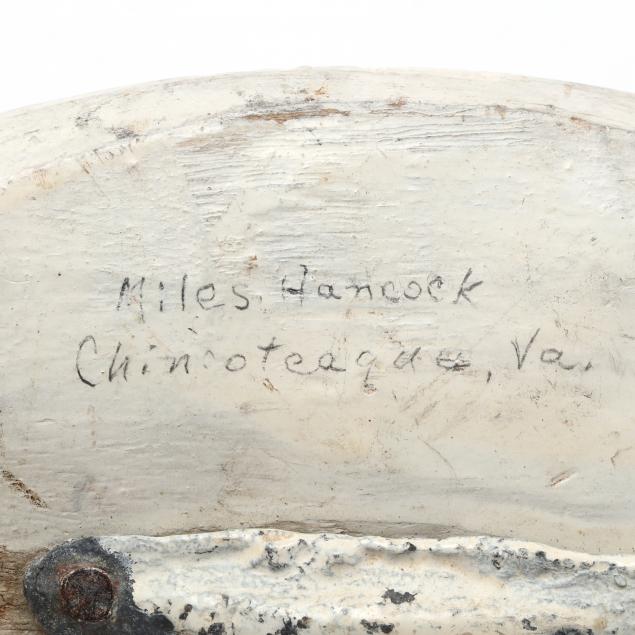 Miles Hancock
Chincoteague, Va.